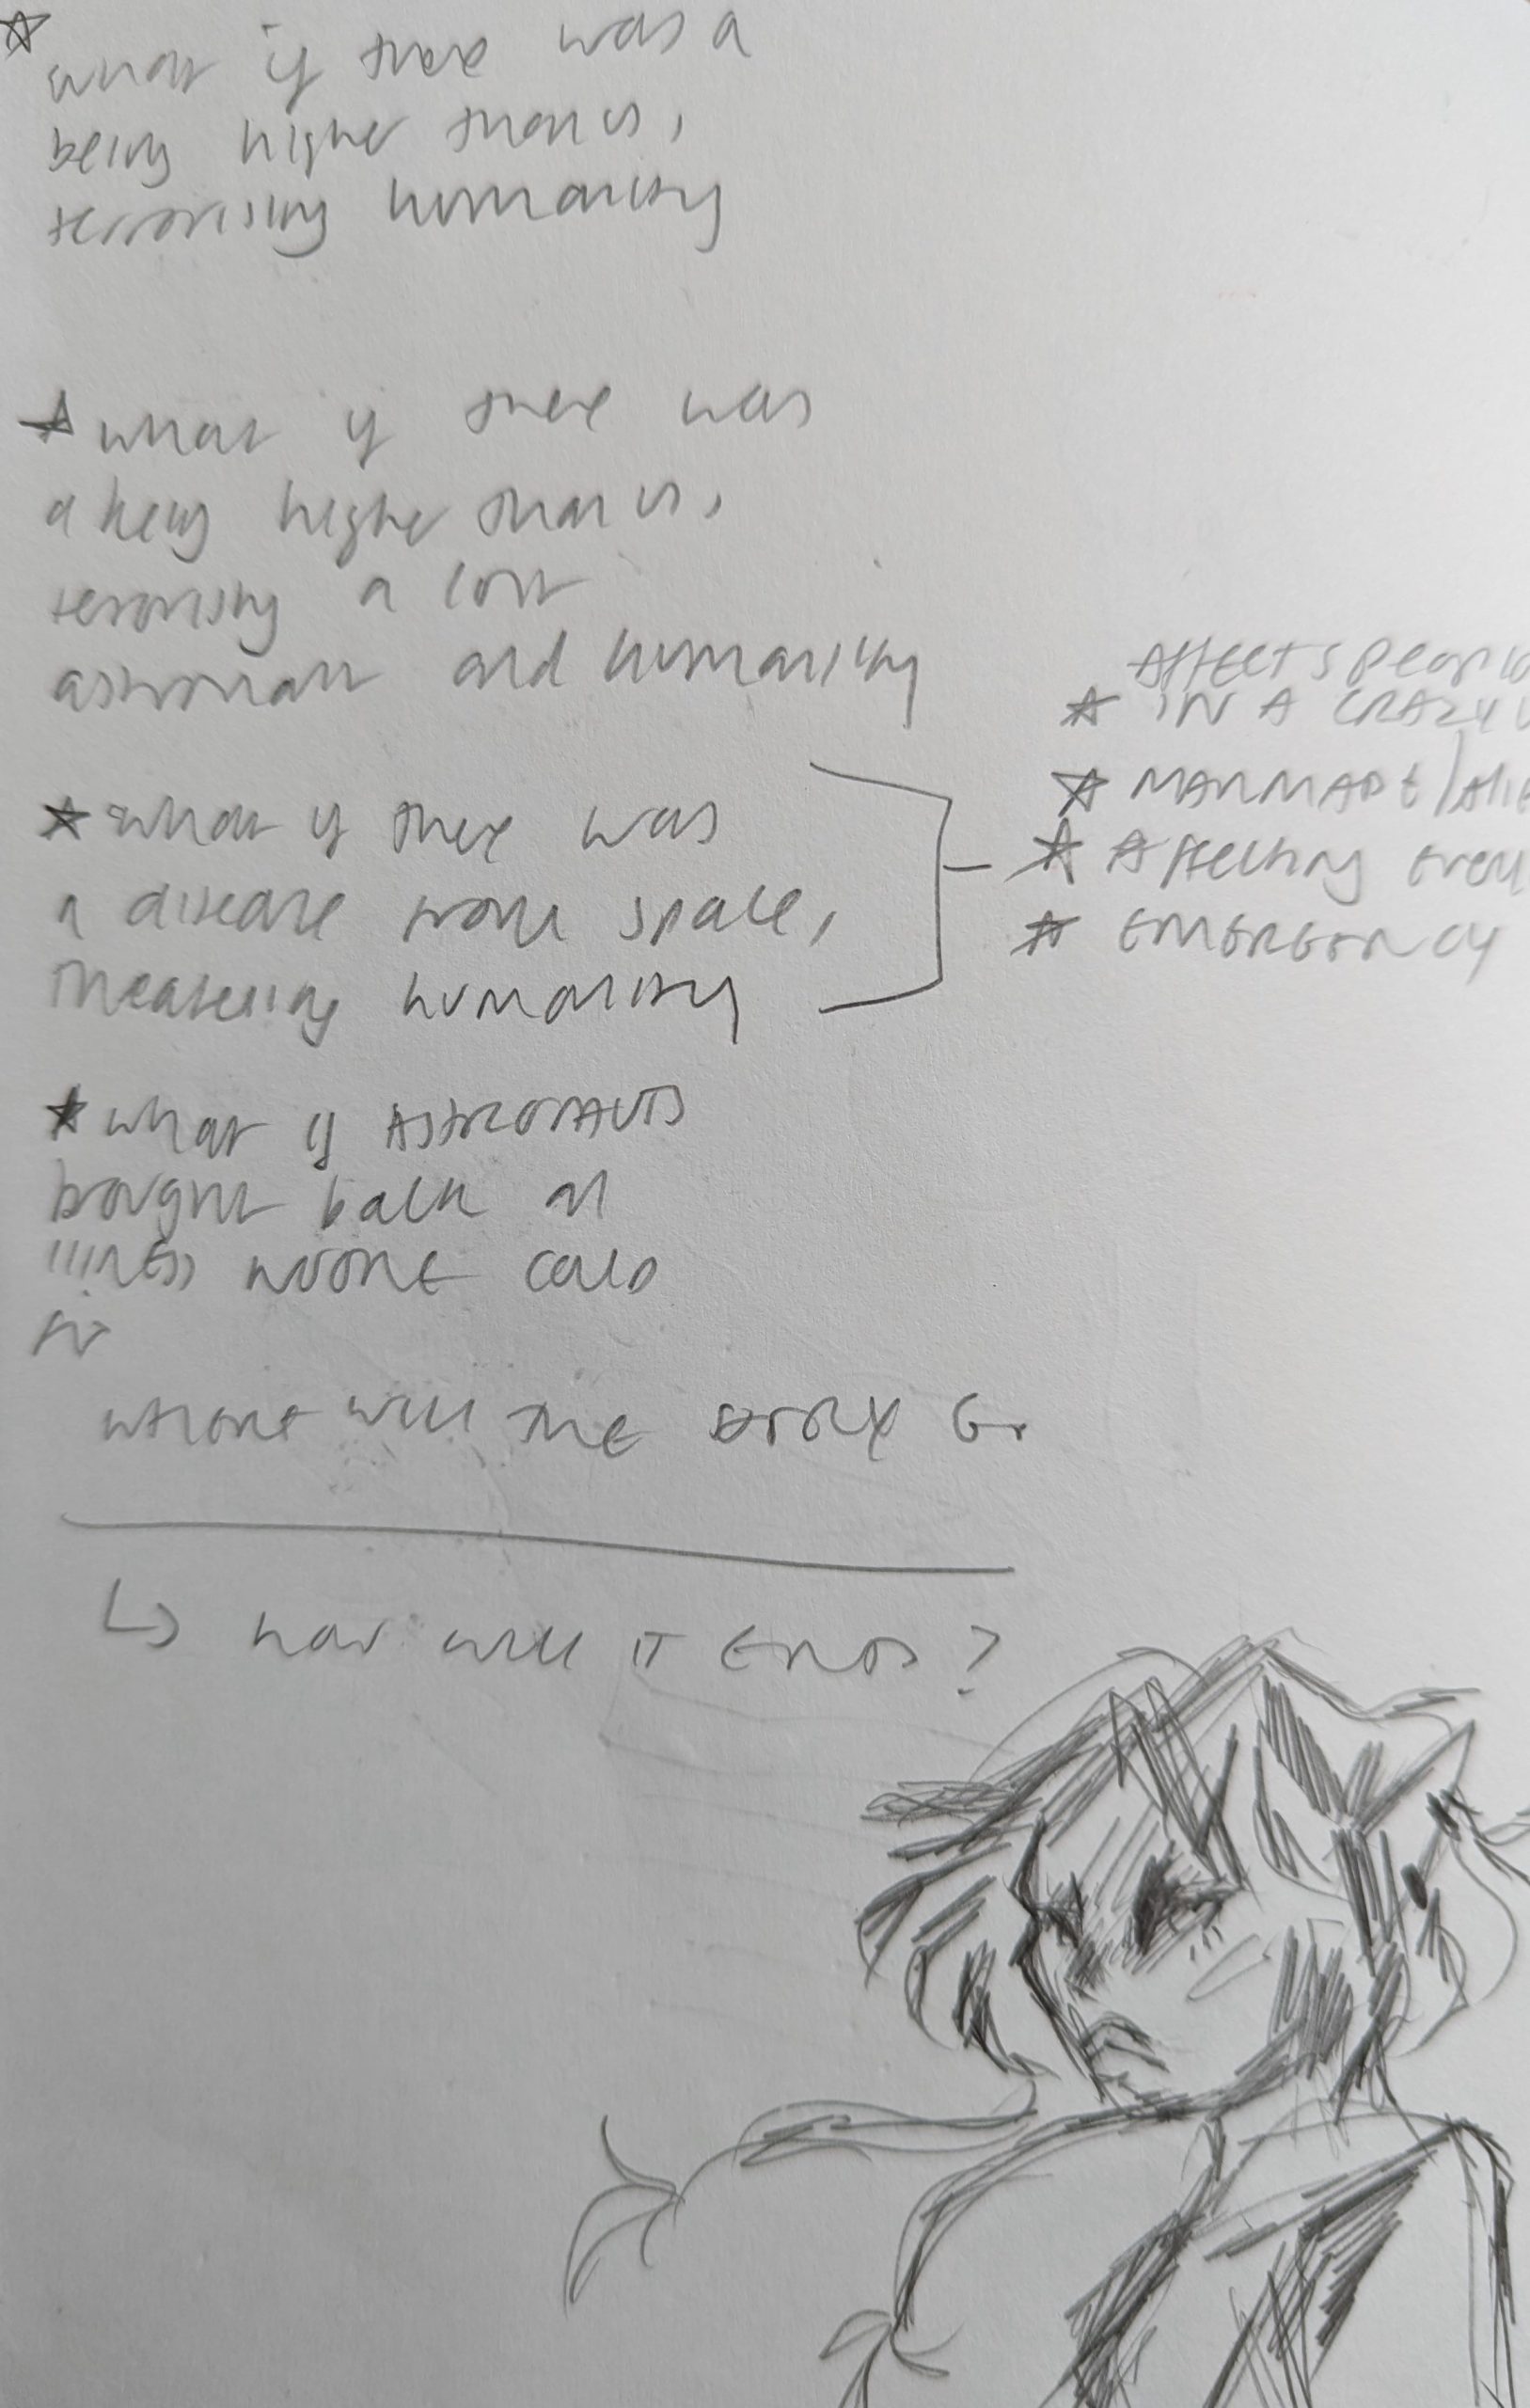 what if there was a
being higher than us,
terrorising humanity
what if there was
a being higher than us,
terrorising a lost
astronaut and humanity
what if there was
a disease from space,
threatening humanity
Affects people
IN A CRAZY
MANMADE/Alie
Affecting every
EMERGENCY
what if ASTRONAUTS
bought back an
illness no one could
fix
WHERE WILL THE STORY GO
HOW WILL IT END?